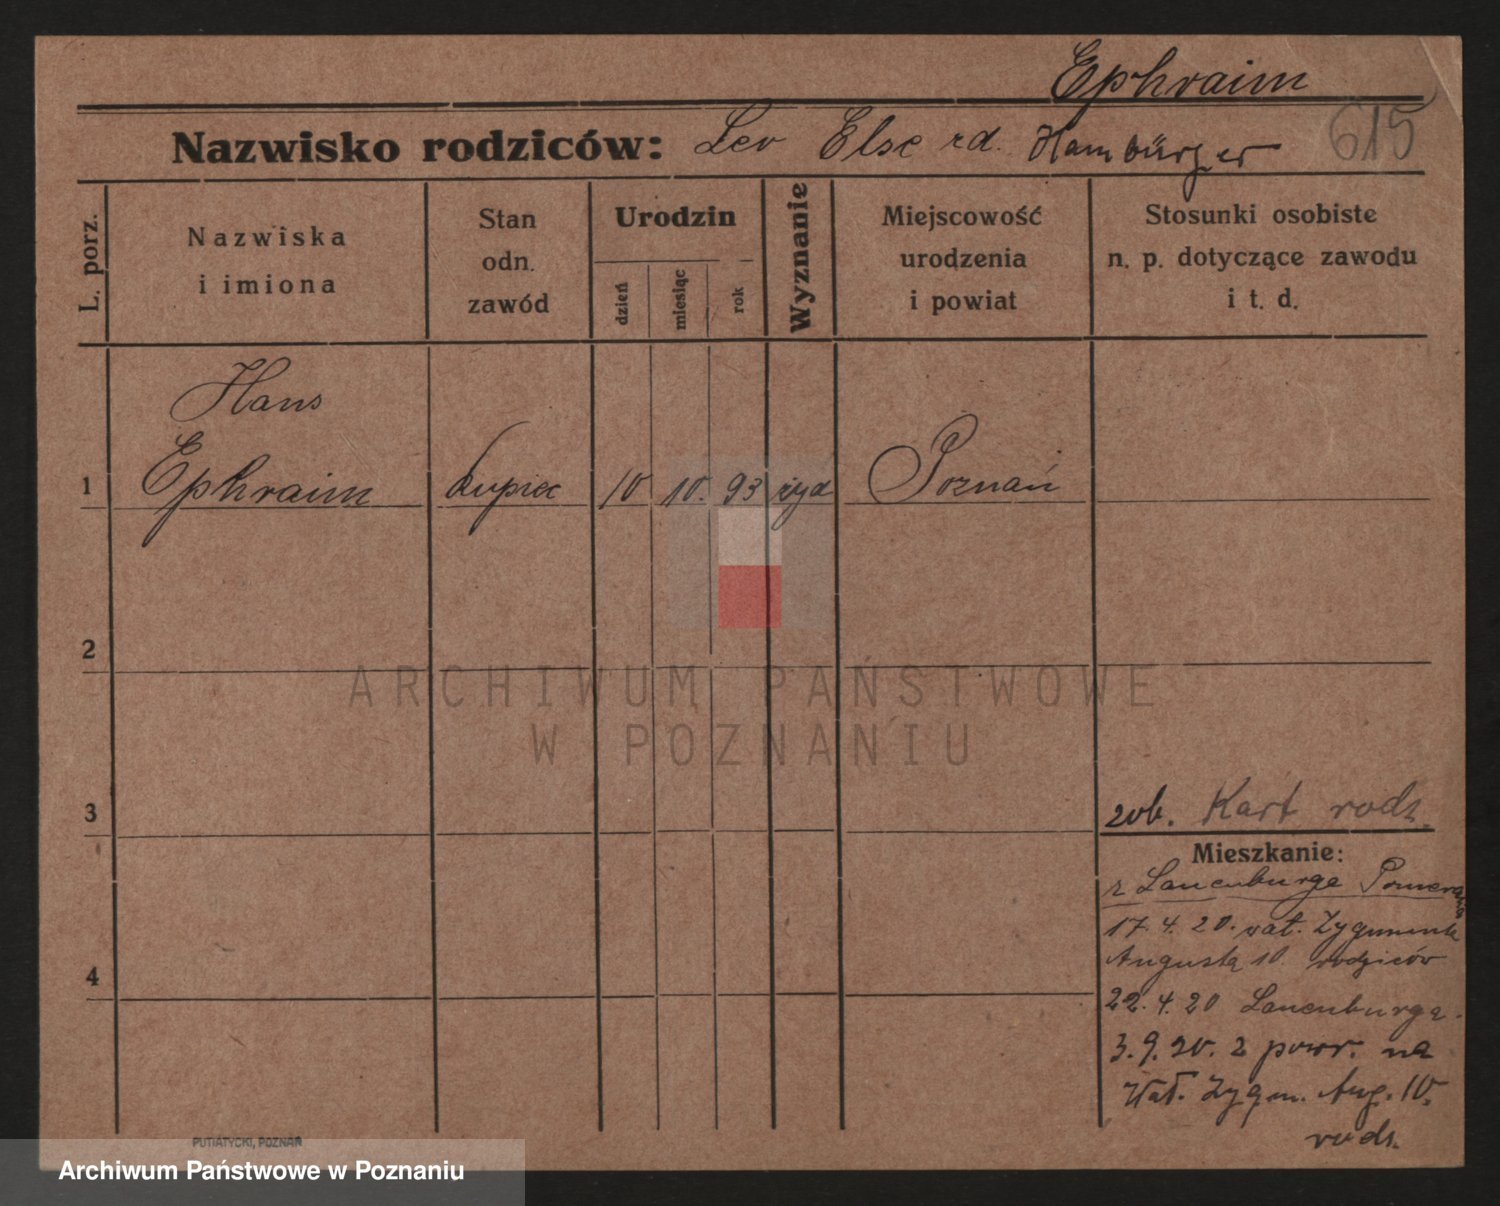 Ephraim
615
Nazwisko rodziców: Leo Else rd. Hambürger
L. porz.
Nazwiska
i imiona
Stan
odn.
zawód
Urodzin
dzień
miesiąc
rok
Wyznanie
Miejscowość
urodzenia
i powiat
Stosunki osobiste
n. p. dotyczące zawodu
i t. d.
Hans
1 Ephraim kupiec 10 10. 93 żyd Poznań
2
ARCHIWUM PAŃSTWOWE
W POZNANIU
3
zob. Kart rodz.
Mieszkanie:
z Lauenburga
17. 4. 20. wał. Zygmunta
Augusta 10. rodziców
4
22. 4. 20 Lauenburga.
3. 9. 20. z powr. na
Wał. Zygm. Aug. 10.
rodz.
PUTIATYCKI, POZNAŃ
Archiwum Państwowe w Poznaniu